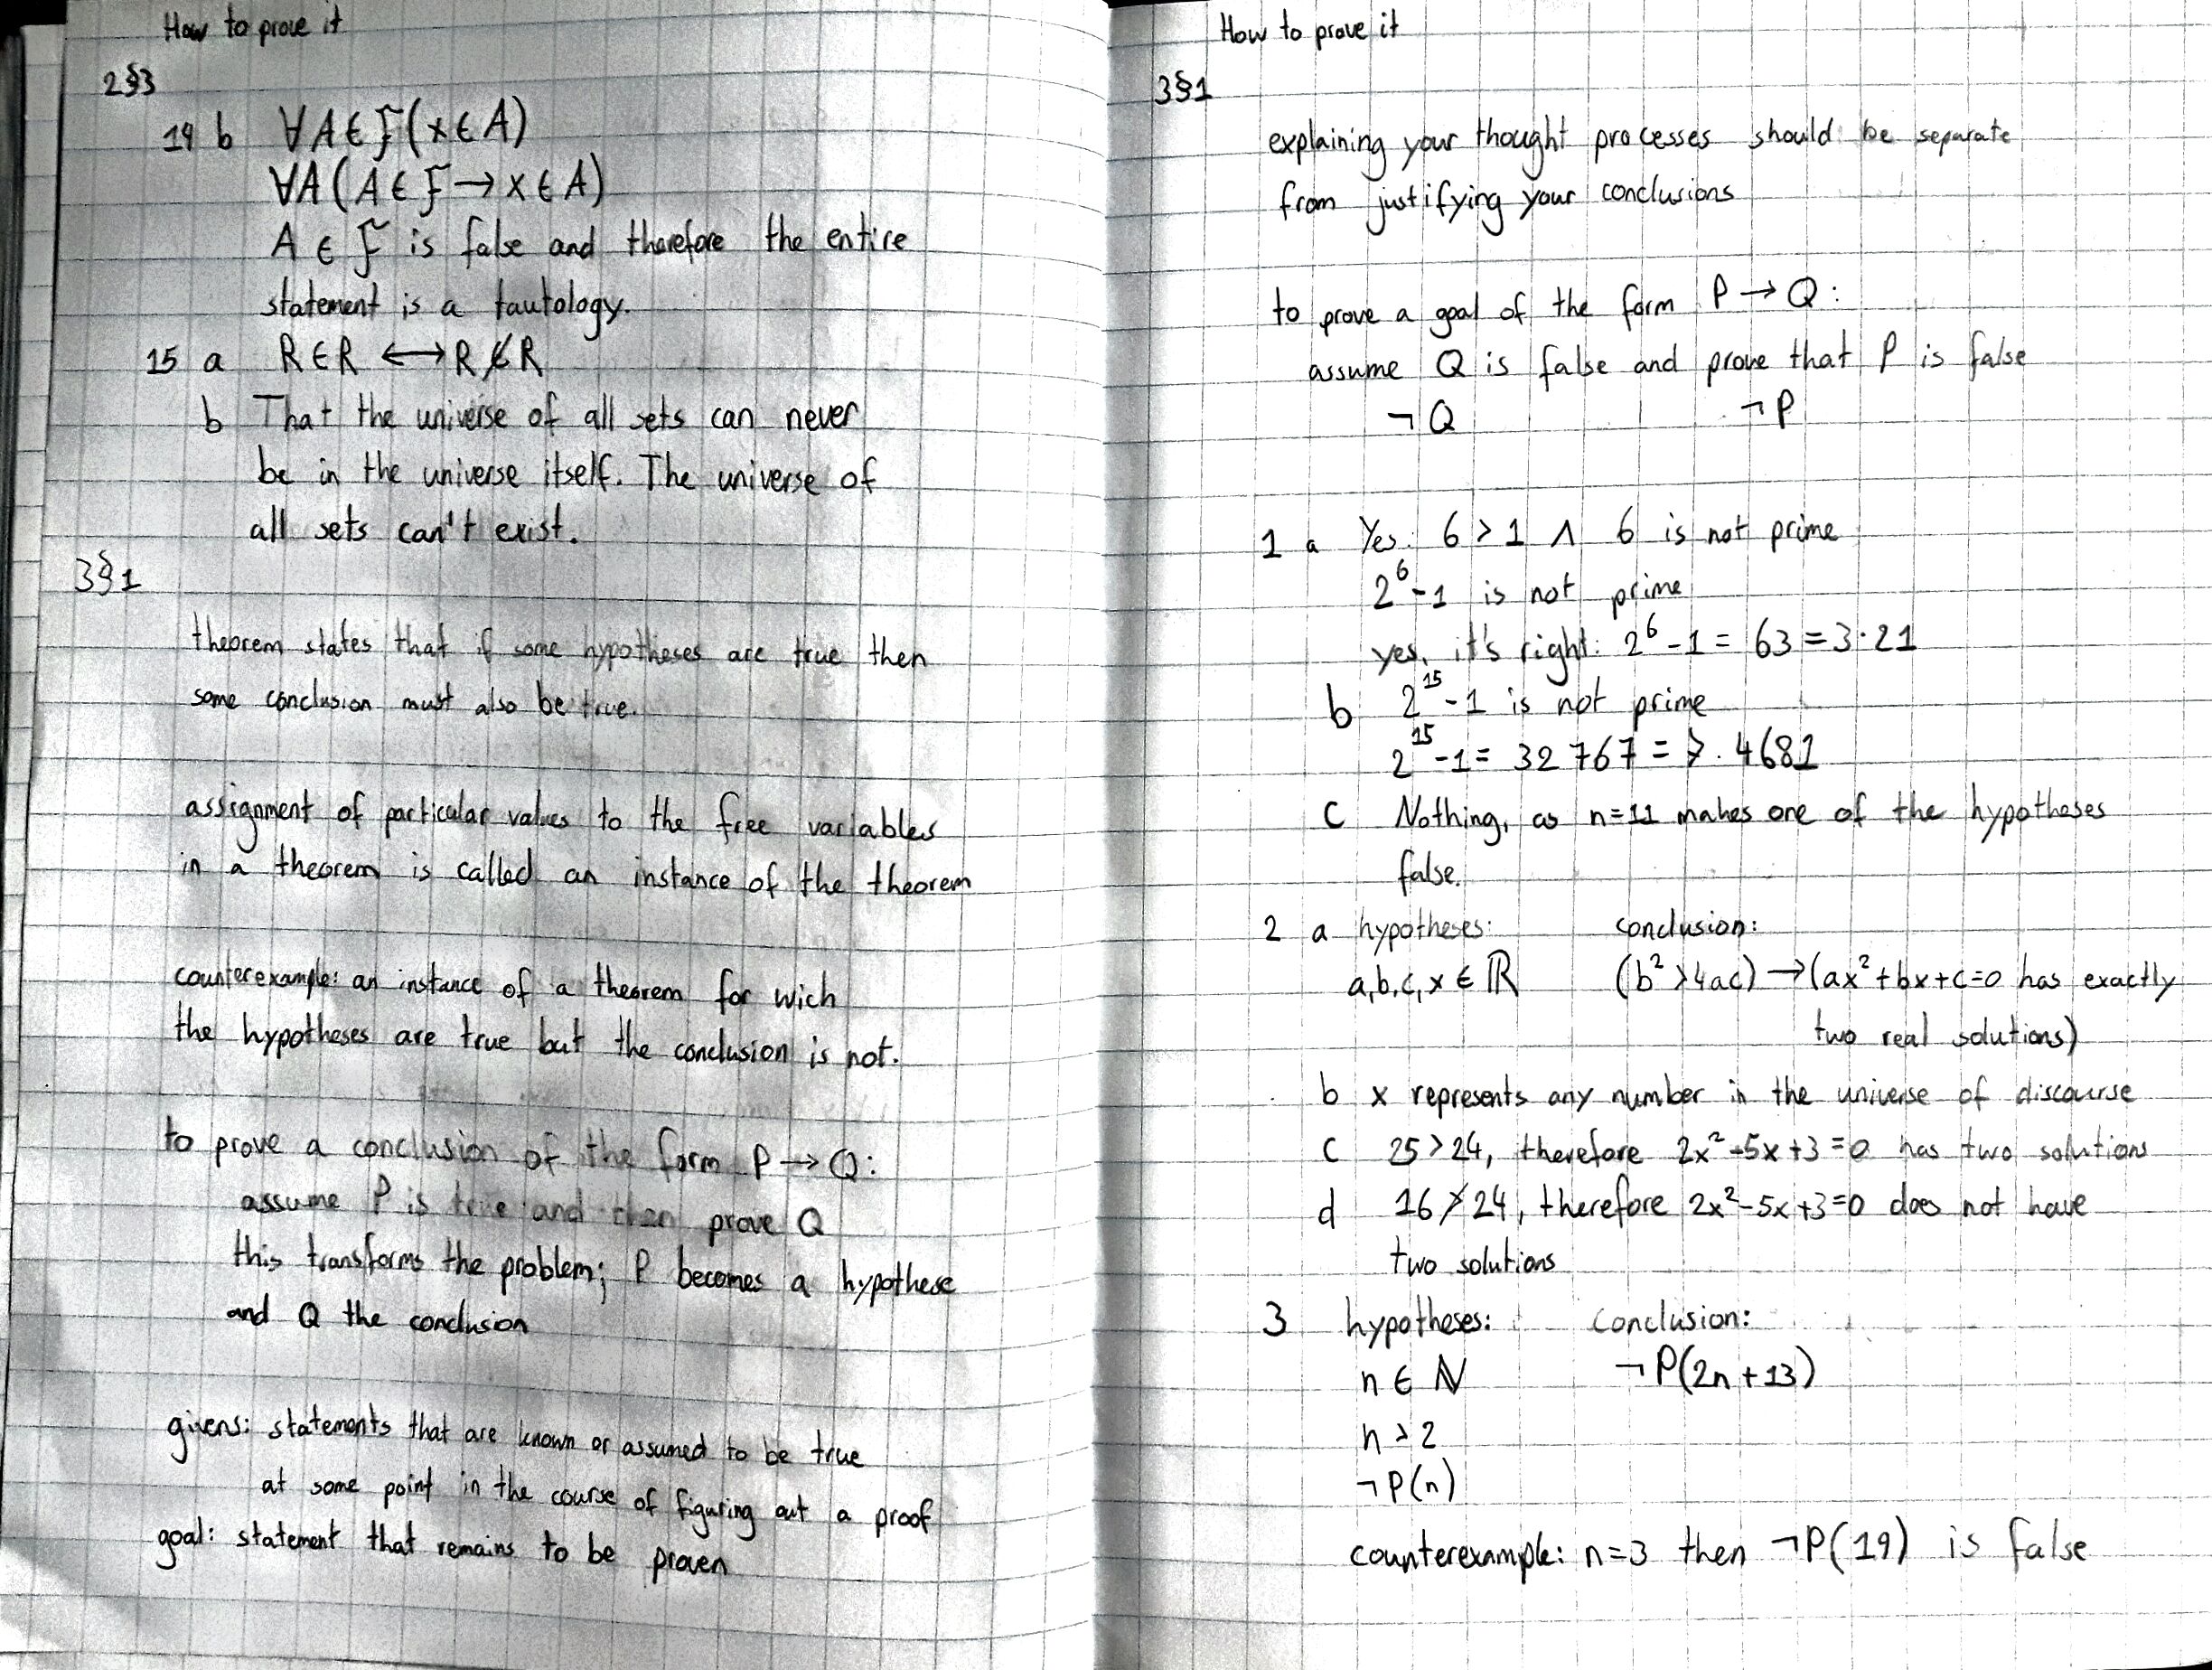 How to prove it
2§3
14 b ∀A∈F(x∈A)
∀A(A∈F→x∈A)
A∈F is false and therefore the entire
statement is a tautology.
15 a R∈R ⟷ R∉R
b That the universe of all sets can never
be in the universe itself. The universe of
all sets can't exist.
3§1
theorem states that if some hypotheses are true then
some conclusion must also be true.
assignment of particular values to the free variables
in a theorem is called an instance of the theorem
counterexample: an instance of a theorem for wich
the hypotheses are true but the conclusion is not.
to prove a conclusion of the form P→Q:
assume P is true and then prove Q
this transforms the problem; P becomes a hypothese
and Q the conclusion
givens: statements that are known or assumed to be true
at some point in the course of figuring out a proof
goal: statement that remains to be proven
How to prove it
3§1
explaining your thought processes should be separate
from justifying your conclusions
to prove a goal of the form P→Q:
assume Q is false and prove that P is false
¬Q ¬P
1 a Yes: 6>1 ∧ 6 is not prime
2⁶-1 is not prime
yes, it's right: 2⁶-1 = 63 = 3·21
b 2¹⁵-1 is not prime
2¹⁵-1 = 32 767 = 7·4681
c Nothing, as n=11 makes one of the hypotheses
false.
2 a hypotheses: conclusion:
a,b,c,x∈ℝ (b²>4ac)→(ax²+bx+c=0 has exactly
two real solutions)
b x represents any number in the universe of discourse
c 25>24, therefore 2x²-5x+3=0 has two solutions
d 16≯24, therefore 2x²-5x+3=0 does not have
two solutions
3 hypotheses: conclusion:
n∈ℕ ¬P(2n+13)
n>2
¬P(n)
counterexample: n=3 then ¬P(19) is false